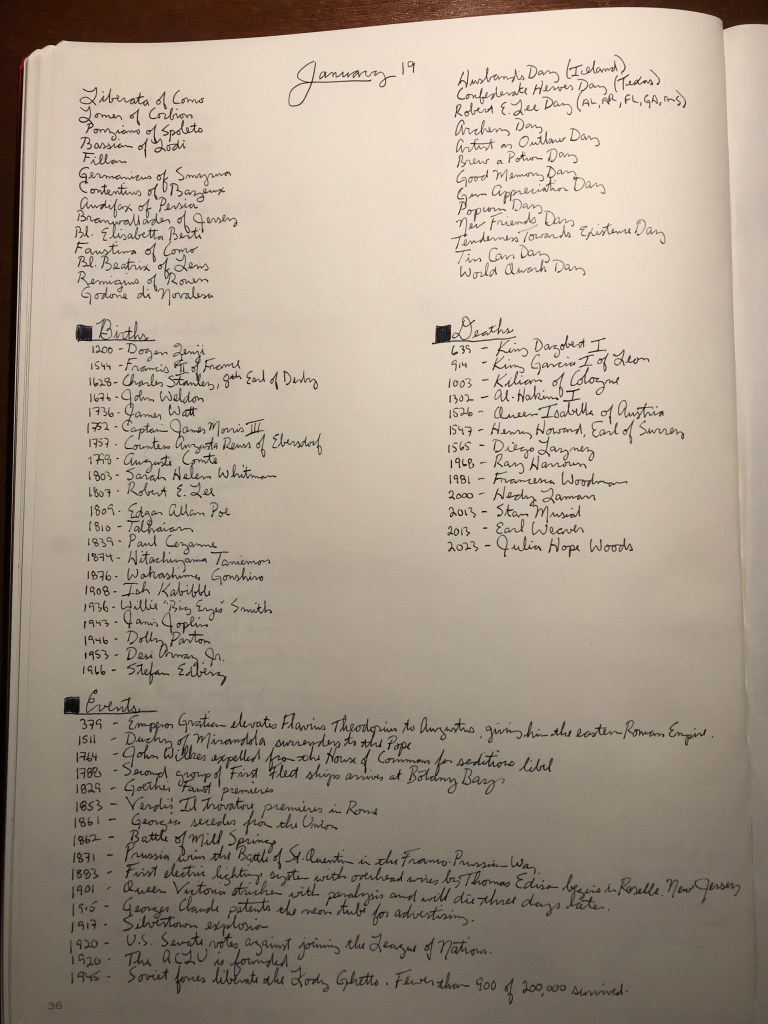 January 19
Liberata of Como
Lomer of Corbion
Ponziano of Spoleto
Bassian of Lodi
Fillan
Germanicus of Smyrna
Contentius of Bayeux
Audifax of Persia
Branwallader of Jersey
Bl. Elisabetta Berti
Faustina of Como
Bl. Beatrix of Lens
Remigius of Rouen
Godone di Novalesa
Husband's Day (Iceland)
Confederate Heroes Day (Texas)
Robert E. Lee Day (AL, AR, FL, GA, MS)
Archery Day
Artist as Outlaw Day
Brew a Potion Day
Good Memory Day
Gun Appreciation Day
Popcorn Day
New Friends Day
Tenderness Towards Existence Day
Tin Can Day
World Quark Day
Births
1200 - Dogen Zenji
1544 - Francis II of France
1628 - Charles Stanley, 8th Earl of Derby
1676 - John Weldon
1736 - James Watt
1752 - Captain James Morris III
1757 - Countess Augusta Reuss of Ebersdorf
1798 - Auguste Comte
1803 - Sarah Helen Whitman
1807 - Robert E. Lee
1809 - Edgar Allan Poe
1810 - Talhaiarn
1839 - Paul Cezanne
1874 - Hitachiyama Taniemon
1876 - Wakashima Gonshiro
1908 - Ish Kabibble
1936 - Willie "Big Eyes" Smith
1943 - Janis Joplin
1946 - Dolly Parton
1953 - Desi Arnaz Jr.
1966 - Stefan Edberg
Deaths
639 - King Dagobert I
914 - King Garcia I of Leon
1003 - Kilian of Cologne
1302 - Al-Hakim I
1526 - Queen Isabella of Austria
1547 - Henry Howard, Earl of Surrey
1565 - Diego Laynez
1968 - Ray Harroun
1981 - Francesca Woodman
2000 - Hedy Lamarr
2013 - Stan Musial
2013 - Earl Weaver
2023 - Julia Hope Woods
Events
379 - Emperor Gratian elevates Flavius Theodosius to Augustus, giving him the eastern Roman Empire.
1511 - Duchy of Mirandola surrenders to the Pope
1764 - John Wilkes expelled from the House of Commons for seditious libel
1788 - Second group of First Fleet ships arrives at Botany Bay
1829 - Goethe's Faust premieres
1853 - Verdi's Il trovatore premieres in Rome
1861 - Georgia secedes from the Union
1862 - Battle of Mill Springs
1871 - Prussia wins the Battle of St. Quentin in the Franco-Prussian War.
1883 - First electric lighting system with overhead wires by Thomas Edison begins in Roselle, New Jersey
1901 - Queen Victoria stricken with paralysis and will die three days later.
1915 - Georges Claude patents the neon tube for advertising.
1917 - Silvertown explosion
1920 - U.S. Senate votes against joining the League of Nations.
1920 - The ACLU is founded
1945 - Soviet forces liberate the Lodz Ghetto. Fewer than 900 of 200,000 survived.
36